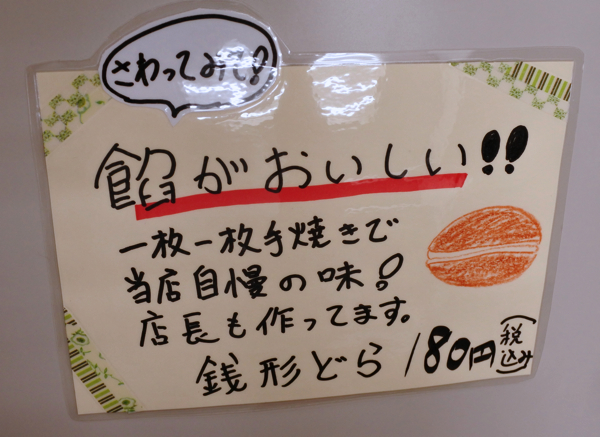 さわってみて!
餡がおいしい!!
一枚一枚手焼きで
当店自慢の味!
店長も作ってます。
銭形どら 180円(税込み)